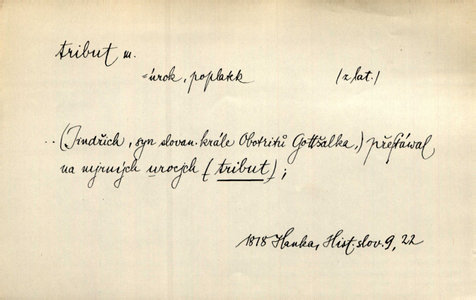 tribut m.
=úrok, poplatek (z lat.)
..(Jindřich, syn slovan. krále Obotritů Gottšalka,) přestáwal
na mjrných urocjch (tribut);
1818 Hanka, Hist. slov. 9, 22